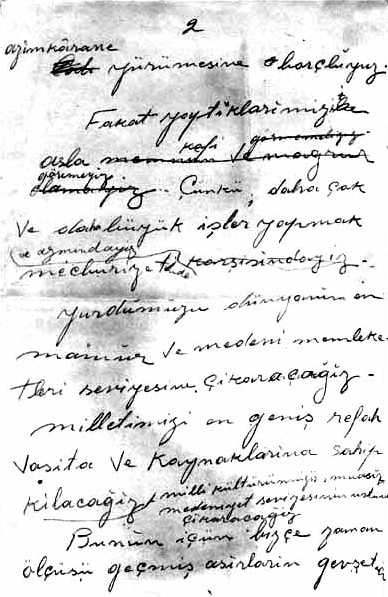 2
azimkârane
yürümesine borçluyuz.
Fakat yaptıklarımızı
kafi görmemeliyiz
asla memnun ve mağrur
göremeyiz
olamayız. Çünkü, daha çok
ve daha büyük işler yapmak
ve azmindeyiz
mecburiyetinde karşısındayız.
Yurdumuzu dünyanın en
mamur ve medeni memleke-
tleri seviyesine çıkaracağız.
milletimizi en geniş refah
Vasıta ve Kaynaklarına sahip
kılacağız, milli kültürümüzü, muasır
medeniyet seviyesinin üstüne
çıkaracağız
Bunun için bizce zaman
ölçüsü geçmiş asırların gevşet